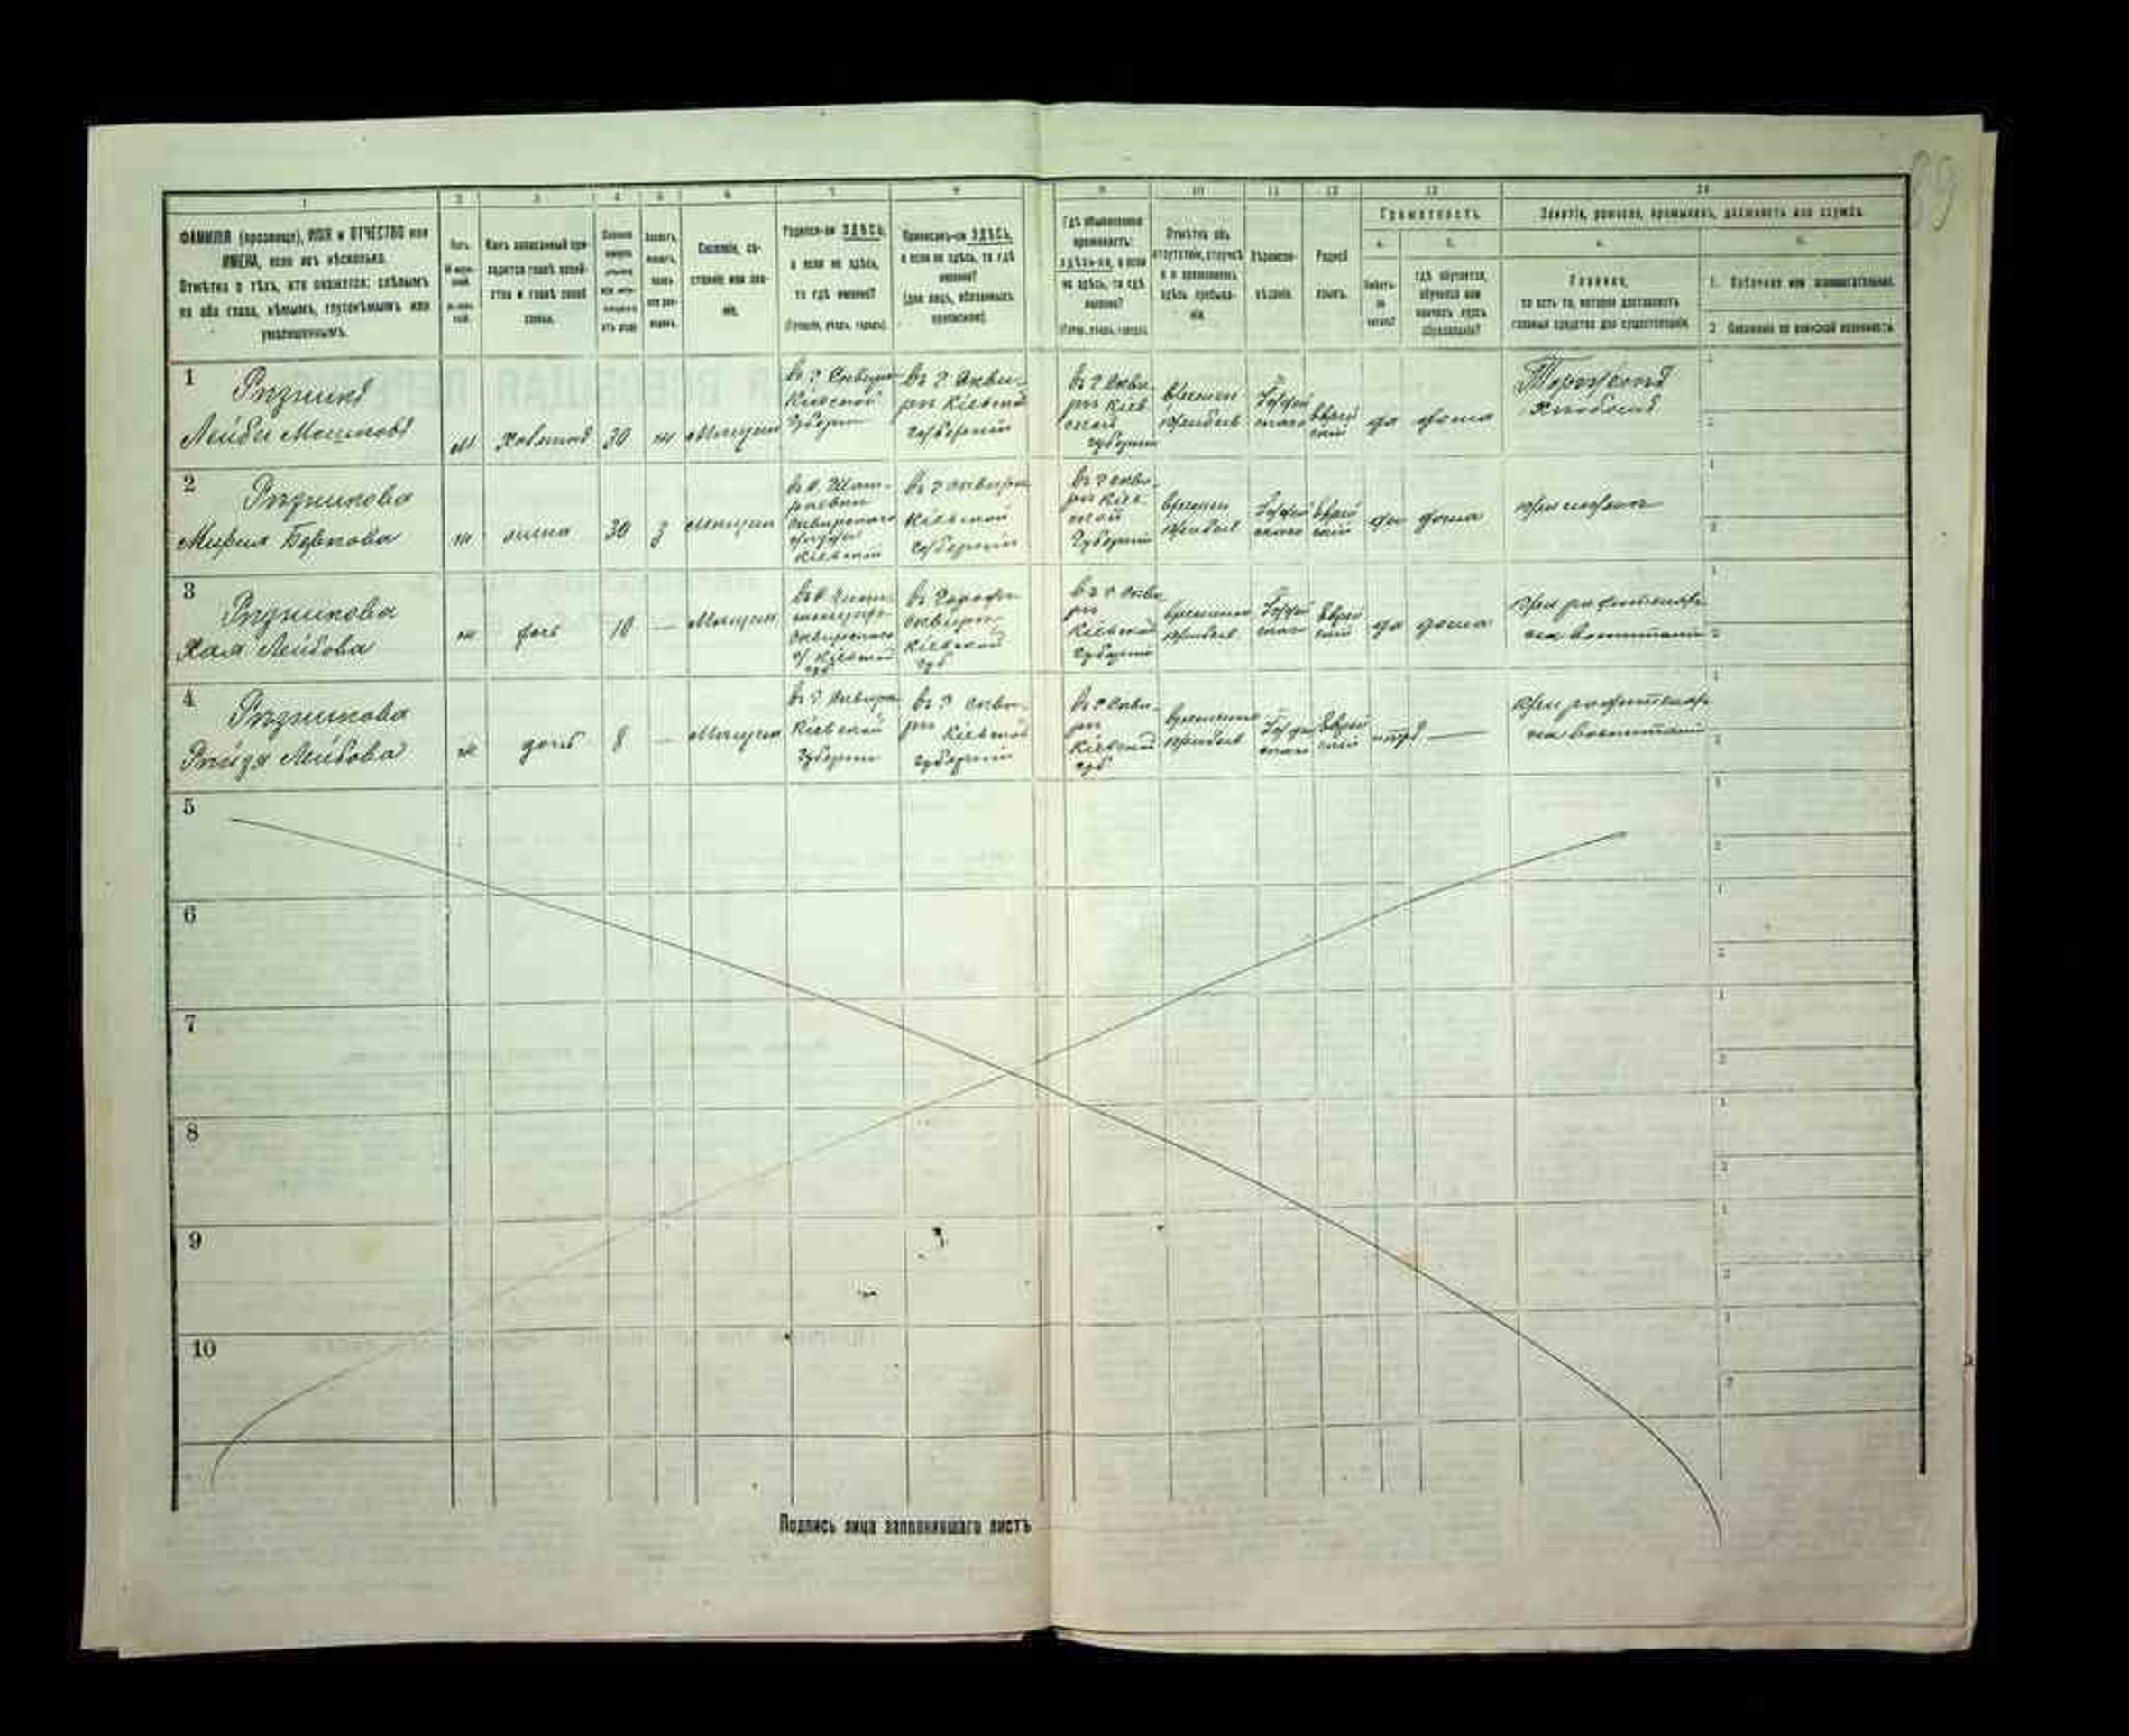 89
1 2 3 4 5 6 7 8 9 10 11 12 13 14
ФАМИЛІЯ (прозвище), ИМЯ и ОТЧЕСТВО или
ИМЕНА, если ихъ нѣсколько.
Отмѣтка о тѣхъ, кто окажется: слѣпымъ
на оба глаза, нѣмымъ, глухонѣмымъ или
умалишеннымъ.
Полъ.
Какъ записанный при-
ходится главѣ хозяй-
ства и главѣ своей
семьи.
Сословіе, со-
стояніе или зва-
ніе.
Родился-ли ЗДѢСЬ,
а если не здѣсь,
то гдѣ именно?
(Губернія, уѣздъ, городъ).
Приписанъ-ли ЗДѢСЬ,
а если не здѣсь, то гдѣ
именно?
(для лицъ, обязанныхъ
припискою).
Гдѣ обыкновенно
проживаетъ:
здѣсь-ли, а если
не здѣсь, то гдѣ
именно?
(Губ., уѣздъ, городъ).
Отмѣтка объ
отсутствіи, отлучкѣ
и о временномъ
здѣсь пребыва-
ніи.
Вѣроиспо-
вѣданіе.
Родной
языкъ.
Грамотность.
а.
Умѣетъ-
ли
читать?
б.
гдѣ обучается,
обучался или
кончилъ курсъ
образованія?
Занятіе, ремесло, промыселъ, должность или служба.
а.
Главное,
то есть то, которое доставляетъ
главныя средства для существованія.
б.
1. Побочное или вспомогательное.
2. Положеніе по воинской повинности.
1
Рѣзникъ
Лейба Мошковъ
м
Хозяинъ
30
ж
Мѣщан
въ г. Сквирѣ
Кіевской
Губерн
въ г Скви-
рѣ Кіевской
Губерніи
въ г Скви
рѣ Кіев
ской
Губерніи
времен
прибыв
Іудей
скаго
Еврей
скій
да
дома
Торговецъ
хлѣбомъ
2
Рѣзникова
Мирия Беркова
ж
жена
30
з
Мѣщан
Сквирскаго
Кіевской
въ г Сквирѣ
Кіевской
Губерніи
въ г Скви
рѣ Кіев
ской
Губерніи
времен
прибыв
Іудей
скаго
Еврей
скій
да
дома
при мужѣ
3
Рѣзникова
Хая Лейбова
ж
дочь
10
—
Мѣщан
Сквирскаго
у Кіевской
губ
въ городѣ
Сквирѣ
Кіевской
губ
въ г Скви
рѣ
Кіевской
Губерніи
временно
прибыв
Іудей
скаго
Еврей
скій
да
дома
При родителяхъ
на воспитаніи
4
Рѣзникова
Рейзя Лейбова
ж
дочь
8
—
Мѣщан
въ г Сквирѣ
Кіевской
Губерніи
въ г Скви
рѣ Кіевской
Губерніи
въ г Скви
рѣ
Кіевской
губ
временно
прибыв
Іудей
скаго
Еврей
скій
нѣтъ
—
При родителяхъ
на воспитаніи
5
6
7
8
9
10
Подпись лица заполнившаго листъ